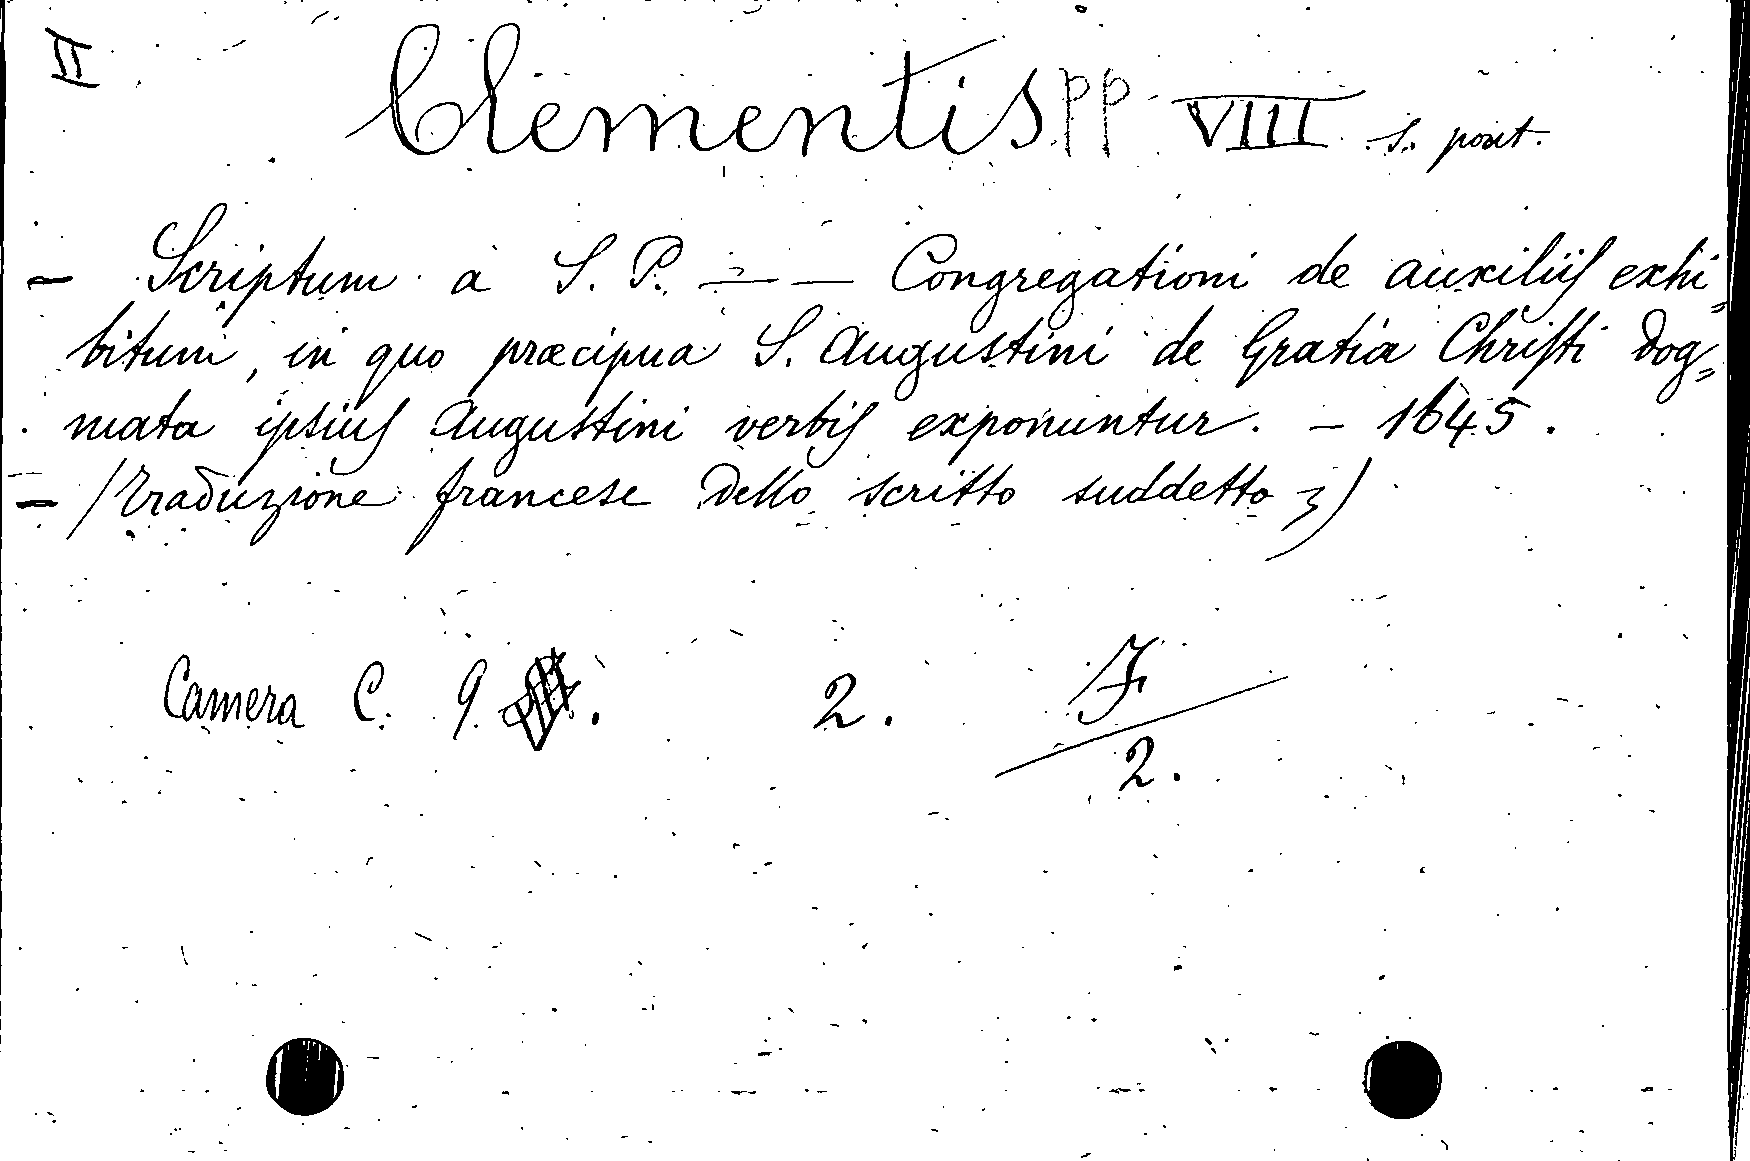 II
Clementis PP VIII s. pont.
- Scriptum a S. P. — — Congregationi de auxiliis exhi=
bitum, in quo præcipua S. Augustini de Gratia Christi dog=
mata ipsius Augustini verbis exponuntur. - 1645.
- (Traduzione francese dello scritto suddetto)
Camera C. 9. 2.
2.